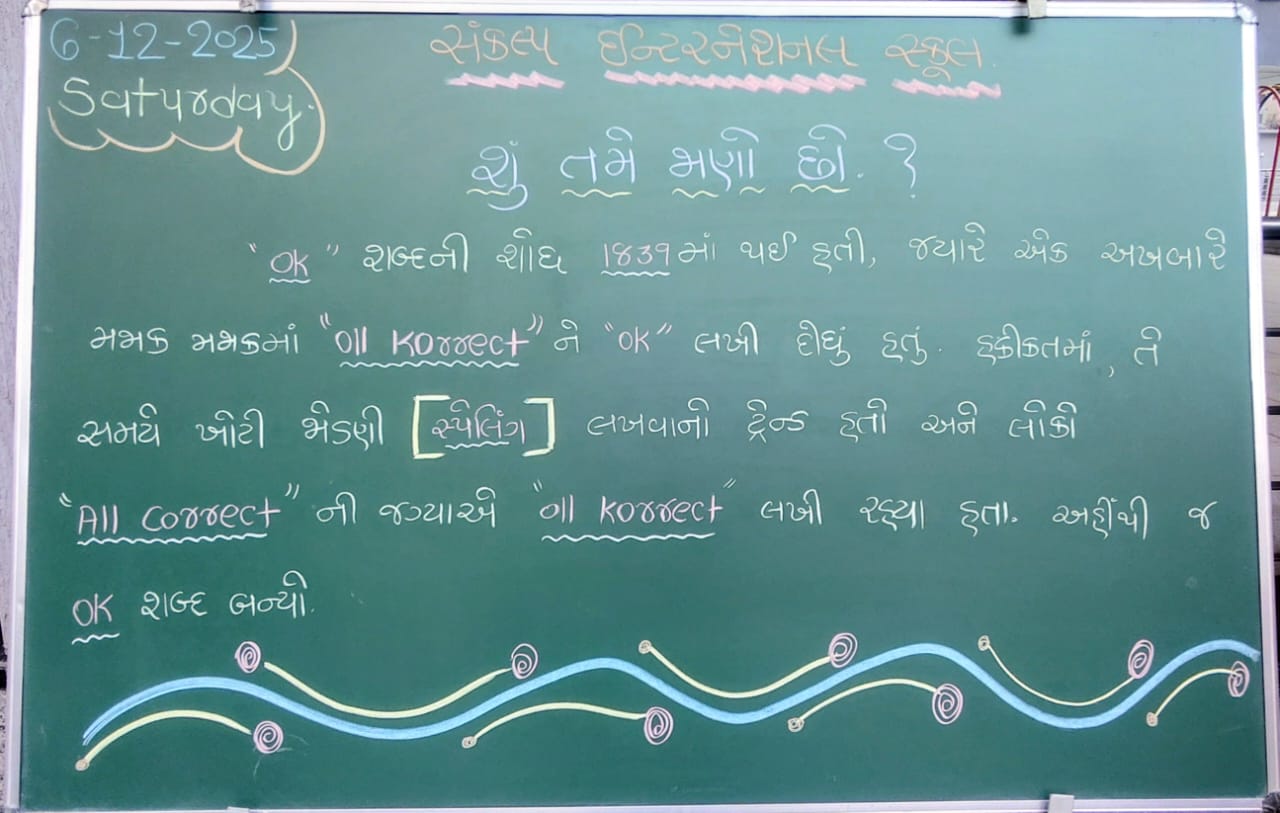 6-12-2025
Saturday.
સંકલ્પ ઈન્ટરનેશનલ સ્કૂલ.
શું તમે જાણો છો. ?
"OK" શબ્દની શોધ 1839માં થઈ હતી, જ્યારે એક અખબારે
મજાક મજાકમાં "oll korrect" ને "ok" લખી દીધું હતું. હકીકતમાં, તે
સમયે ખોટી જોડણી [સ્પેલિંગ] લખવાનો ટ્રેન્ડ હતો અને લોકો
"All correct" ની જગ્યાએ "oll korrect" લખી રહ્યા હતા. અહીંથી જ
OK શબ્દ બન્યો.